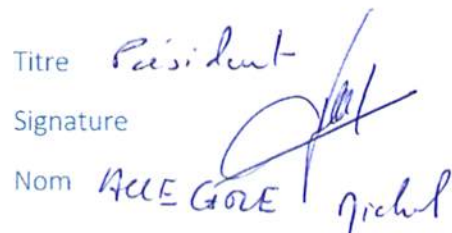 Titre Président
Signature
Nom ALLEGORE Michel